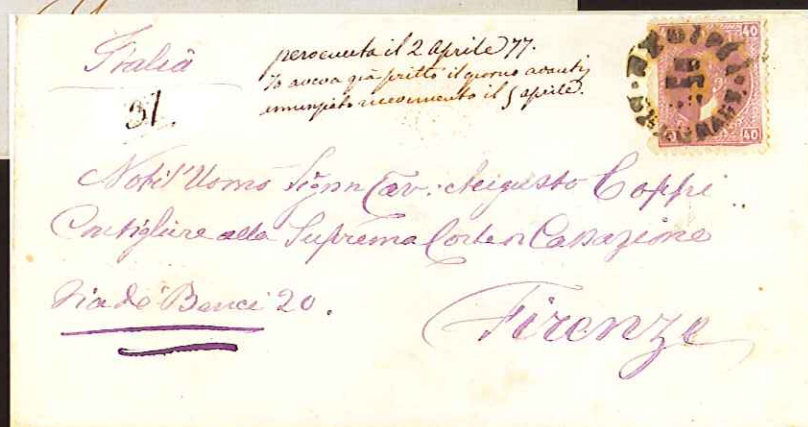 Italia
pervenuta il 2 Aprile 77.
Io aveva già scritto il giorno avanti
il 5 aprile.
31
Nobil'Uomo Sign Cav: Augusto Coppi
Consigliere alla Suprema Corte di Cassazione
Via de' Benci 20.
Firenze
40
40 40